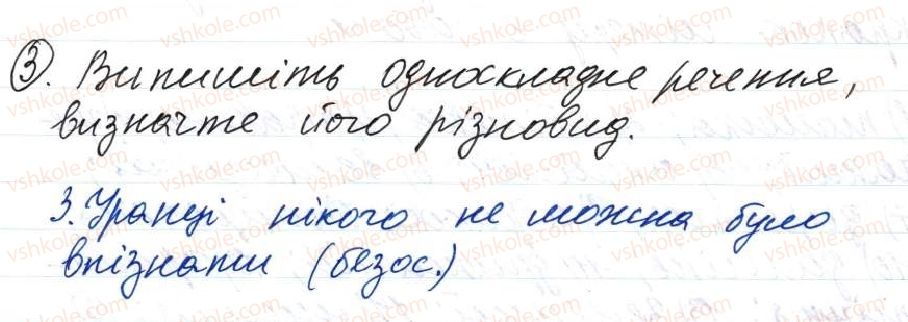 3. Випишіть односкладне речення,
визначте його різновид.
3. Уранці нікого не можна було
впізнати (безос.)